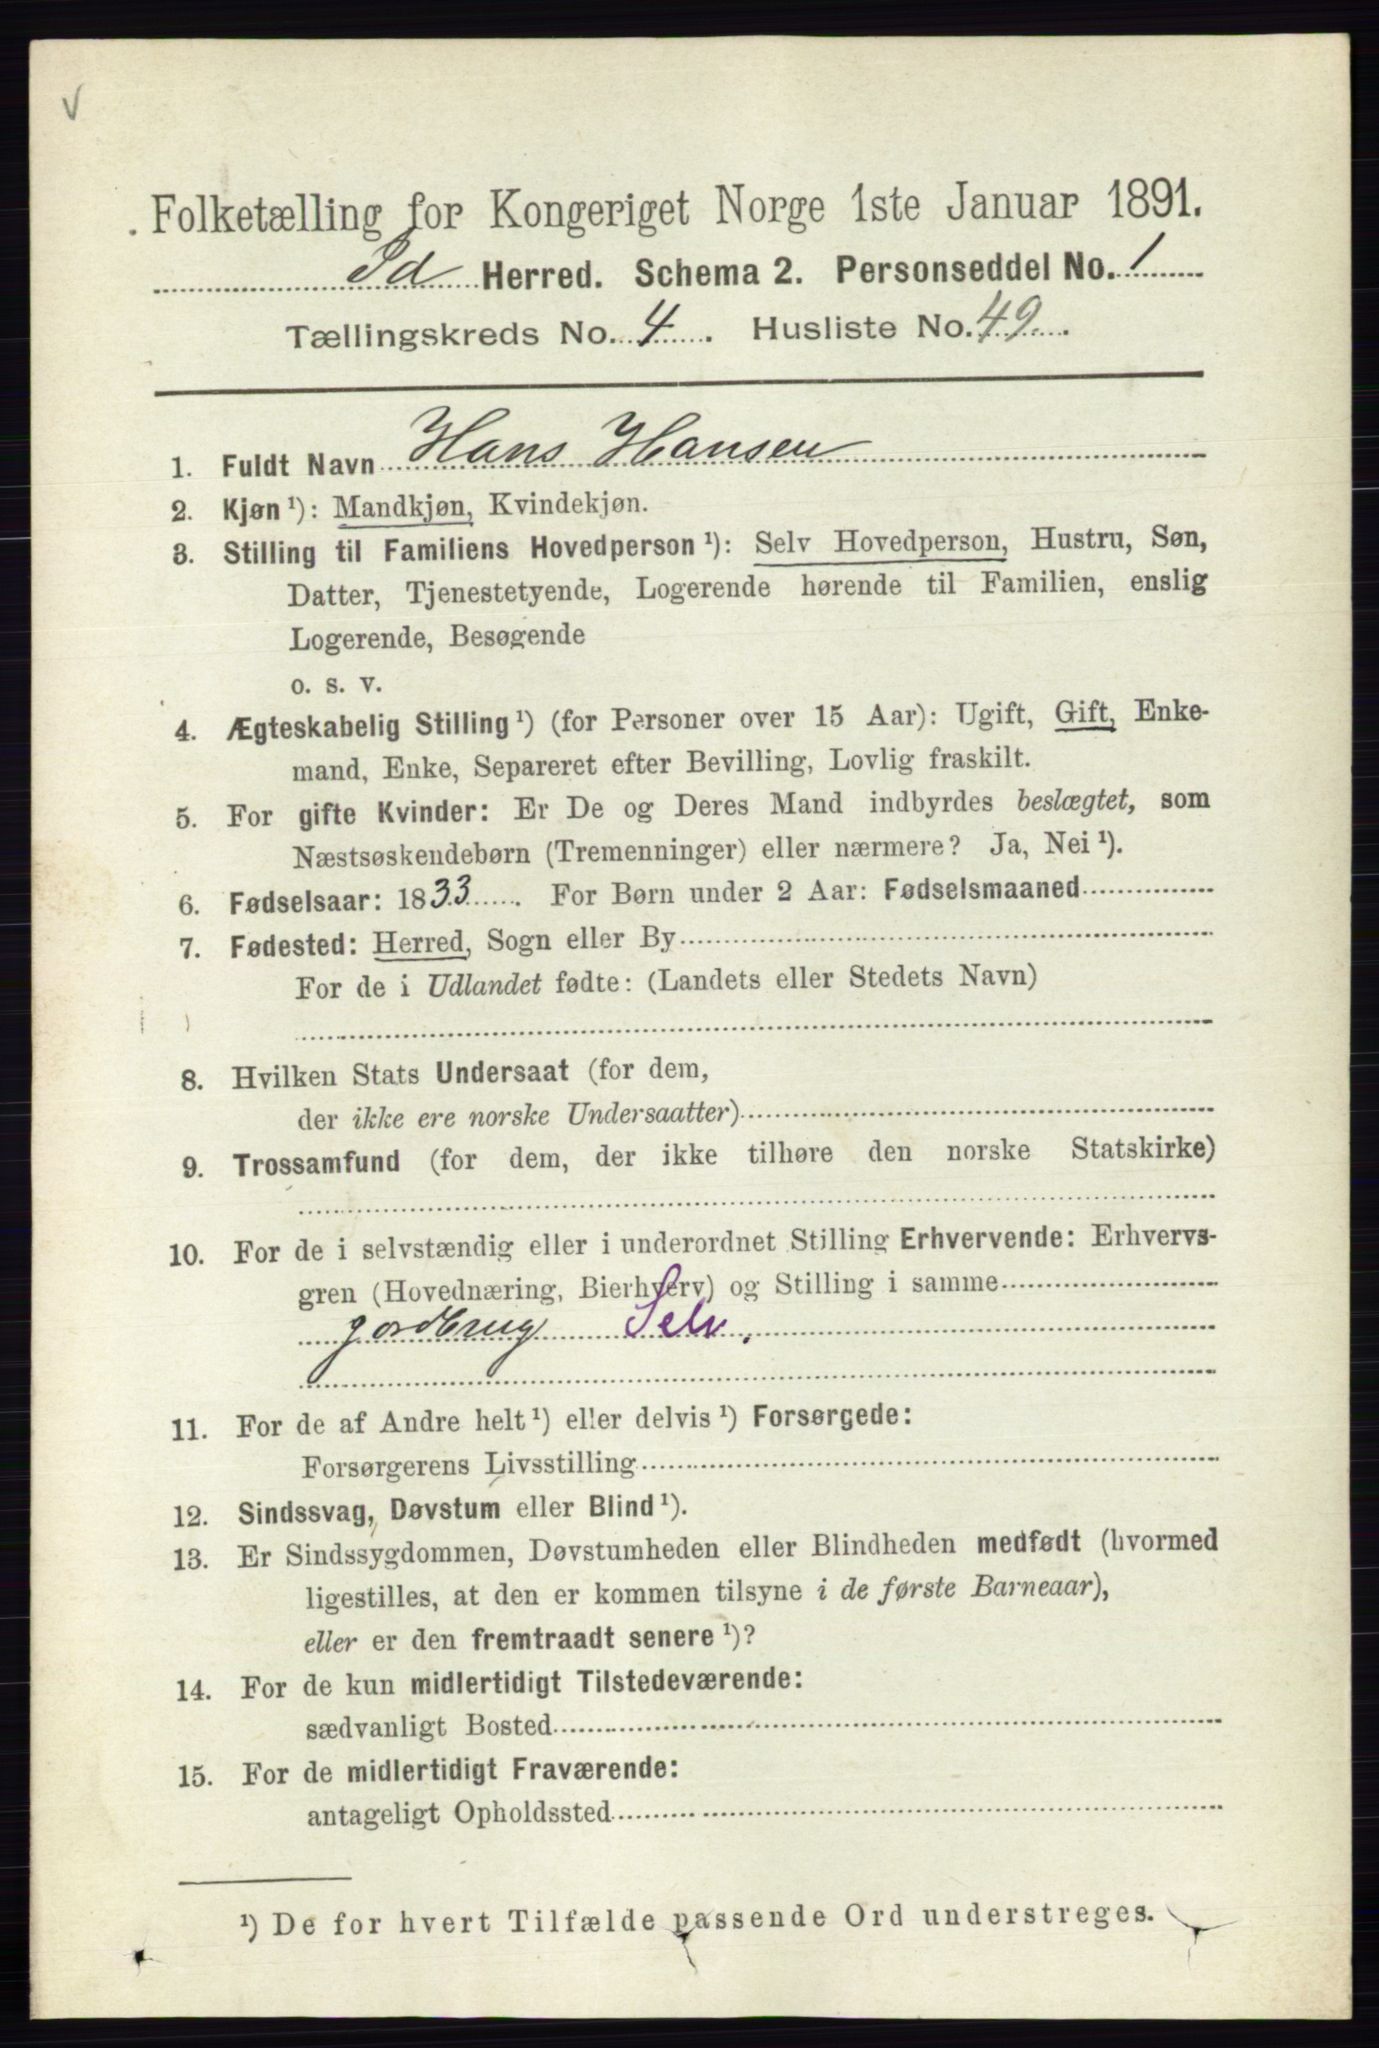 V
Folketælling for Kongeriget Norge 1ste Januar 1891.
Id Herred. Schema 2. Personseddel No. 1
Tællingskreds No. 4. Husliste No. 49.
1. Fuldt Navn Hans Hansen
2. Kjøn ¹): Mandkjøn, Kvindekjøn.
3. Stilling til Familiens Hovedperson ¹): Selv Hovedperson, Hustru, Søn,
Datter, Tjenestetyende, Logerende hørende til Familien, enslig
Logerende, Besøgende
o. s. v.
4. Ægteskabelig Stilling ¹) (for Personer over 15 Aar): Ugift, Gift, Enke-
mand, Enke, Separeret efter Bevilling, Lovlig fraskilt.
5. For gifte Kvinder: Er De og Deres Mand indbyrdes beslægtet, som
Næstsøskendebørn (Tremenninger) eller nærmere? Ja, Nei ¹).
6. Fødselsaar: 1833. For Børn under 2 Aar: Fødselsmaaned
7. Fødested: Herred, Sogn eller By
For de i Udlandet fødte: (Landets eller Stedets Navn)
8. Hvilken Stats Undersaat (for dem,
der ikke ere norske Undersaatter)
9. Trossamfund (for dem, der ikke tilhøre den norske Statskirke)
10. For de i selvstændig eller i underordnet Stilling Erhvervende: Erhvervs-
gren (Hovednæring, Bierhverv) og Stilling i samme
jordbrug Selv.
11. For de af Andre helt ¹) eller delvis ¹) Forsørgede:
Forsørgerens Livsstilling
12. Sindssvag, Døvstum eller Blind ¹).
13. Er Sindssygdommen, Døvstumheden eller Blindheden medfødt (hvormed
ligestilles, at den er kommen tilsyne i de første Barneaar),
eller er den fremtraadt senere ¹)?
14. For de kun midlertidigt Tilstedeværende:
sædvanligt Bosted
15. For de midlertidigt Fraværende:
antageligt Opholdssted
¹) De for hvert Tilfælde passende Ord understreges.